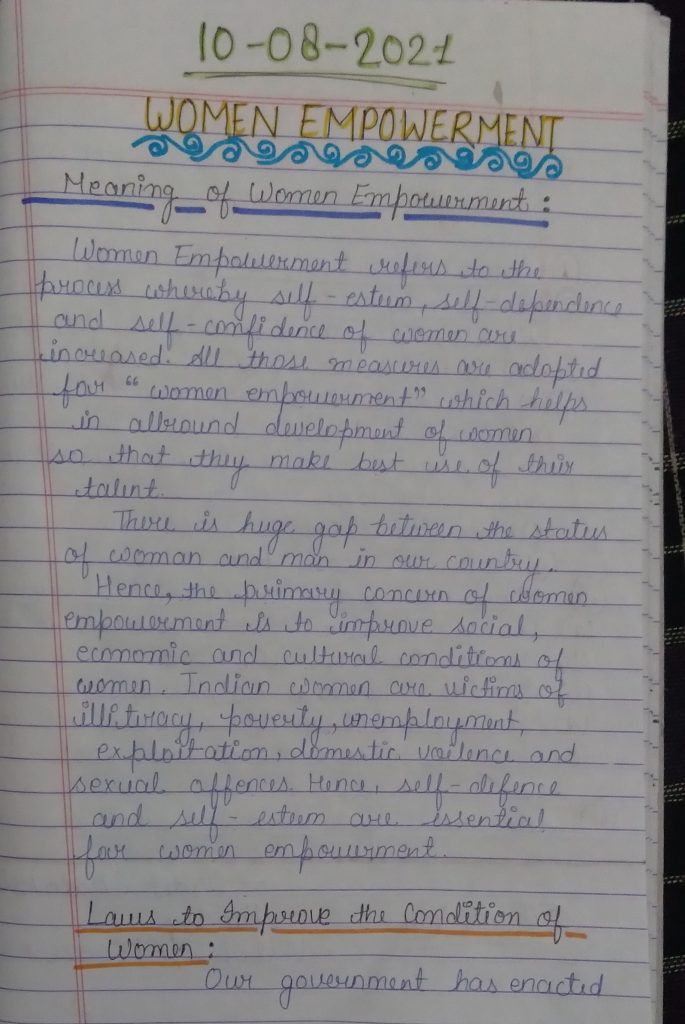 10-08-2021
WOMEN EMPOWERMENT
Meaning of Women Empowerment :
Women Empowerment refers to the
process whereby self-esteem, self-dependence
and self-confidence of women are
increased. All those measures are adopted
for "women empowerment" which helps
in allround development of women
so that they make best use of their
talent.
There is huge gap between the status
of woman and man in our country.
Hence, the primary concern of women
empowerment is to improve social,
economic and cultural conditions of
women. Indian women are victims of
illitiracy, poverty, unemployment,
exploitation, domestic voilence and
sexual offences. Hence, self-defence
and self-esteem are essential
for women empowerment.
Laws to Improve the Condition of
Women :
Our government has enacted